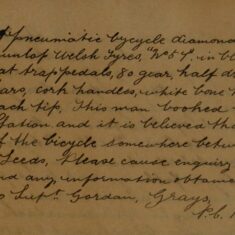 pneumatic bycycle diamond
Dunlop Welsh Tyres, "No 54. in bl
at trap pedals, 80 gear, half d
ars, cork handles, white bone
ach tip. This man booked
Station and it is believed th
f the bicycle somewhere betw
Leeds, Please cause enquiry
nd any information obtaine
o Supt. Gordon, Grays,
P.C.